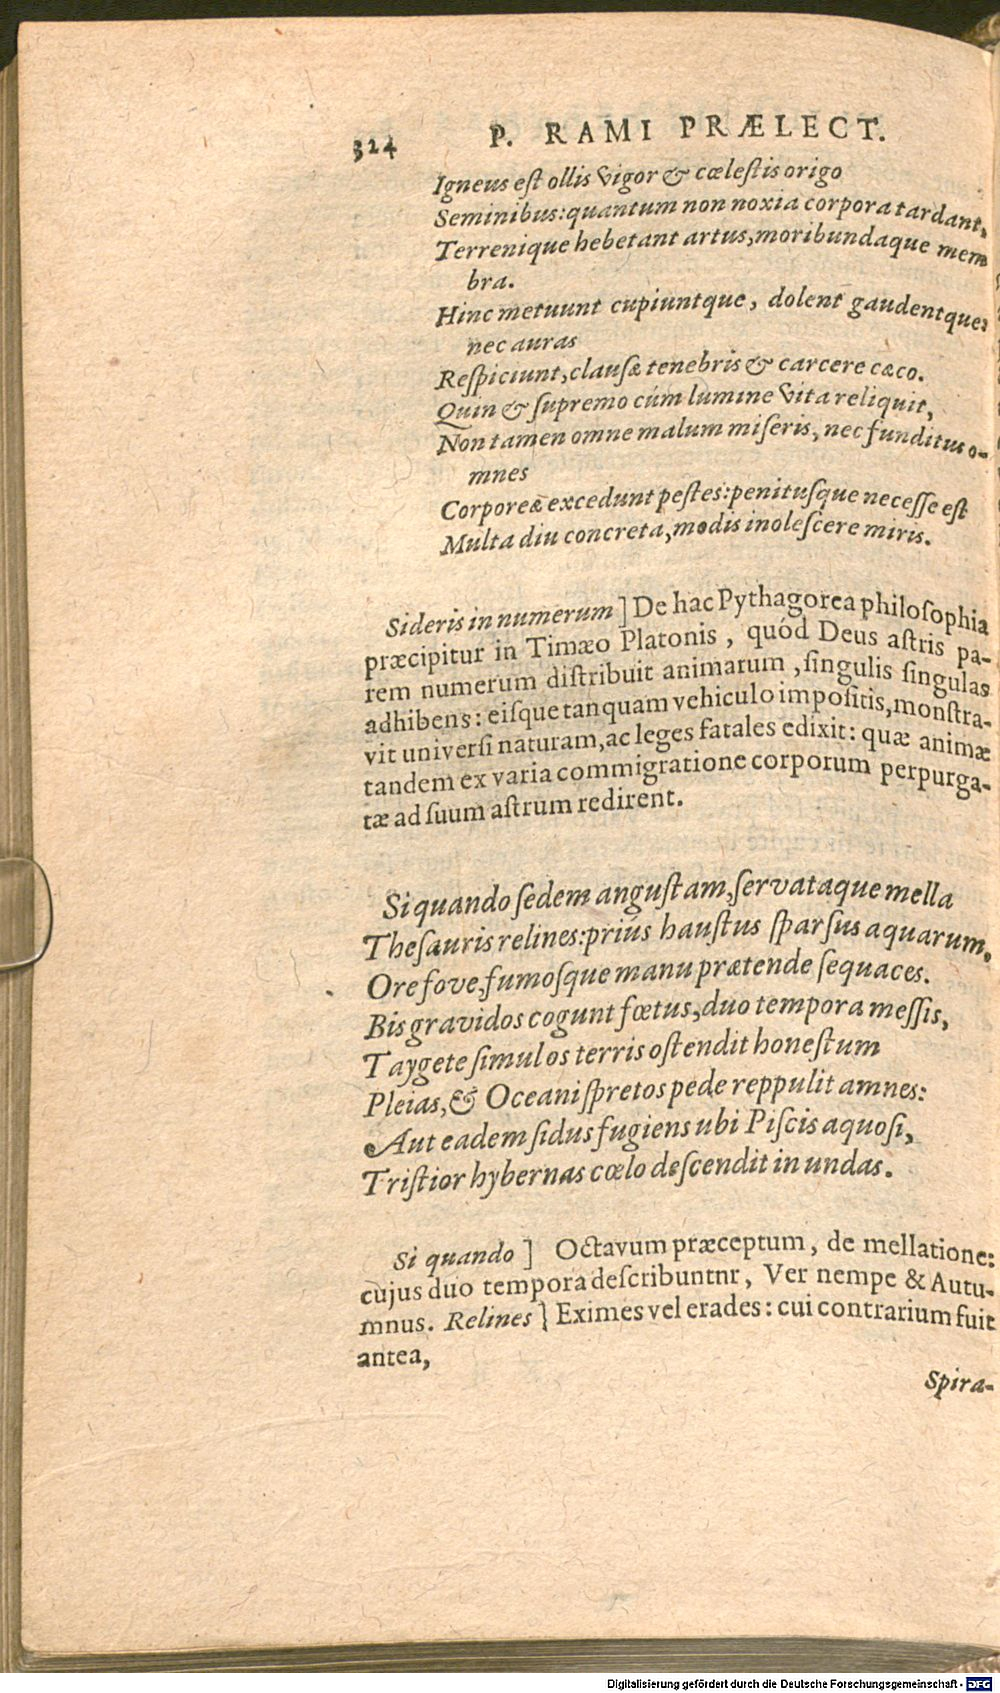 324 P. RAMI PRÆLECT.
Igneus eſt ollis vigor & cœleſtis origo
Seminibus: quantum non noxia corpora tardant,
Terrenique hebetant artus, moribundaque mem
bra.
Hinc metuunt cupiuntque, dolent gaudentque:
nec auras
Reſpiciunt, clauſæ tenebris & carcere cæco.
Quin & ſupremo cúm lumine vita reliquit,
Non tamen omne malum miſeris, nec funditus o-
mnes
Corporeæ excedunt peſtes: penituſque neceſſe eſt
Multa diu concreta, modis inoleſcere miris.
Sideris in numerum ] De hac Pythagorea philoſophia
præcipitur in Timæo Platonis, quód Deus aſtris pa-
rem numerum diſtribuit animarum, ſingulis ſingulas
adhibens: eiſque tanquam vehiculo impoſitis, monſtra-
vit univerſi naturam, ac leges fatales edixit: quæ animæ
tandem ex varia commigratione corporum perpurga-
tæ ad ſuum aſtrum redirent.
Si quando ſedem anguſtam, ſervataque mella
Theſauris relines: priús hauſtus ſparſus aquarum,
Ore fove, fumoſque manu prætende ſequaces.
Bis gravidos cogunt fœtus, duo tempora meſſis,
Taygete ſimul os terris oſtendit honeſtum
Pleias, & Oceani ſpretos pede reppulit amnes:
Aut eadem ſidus fugiens ubi Piſcis aquoſi,
Triſtior hybernas cœlo deſcendit in undas.
Si quando ] Octavum præceptum, de mellatione:
cujus duo tempora deſcribuntnr, Ver nempe & Autu-
mnus. Relines ] Eximes vel erades: cui contrarium fuit
antea,
Spira-
Digitalisierung gefördert durch die Deutsche Forschungsgemeinschaft - DFG